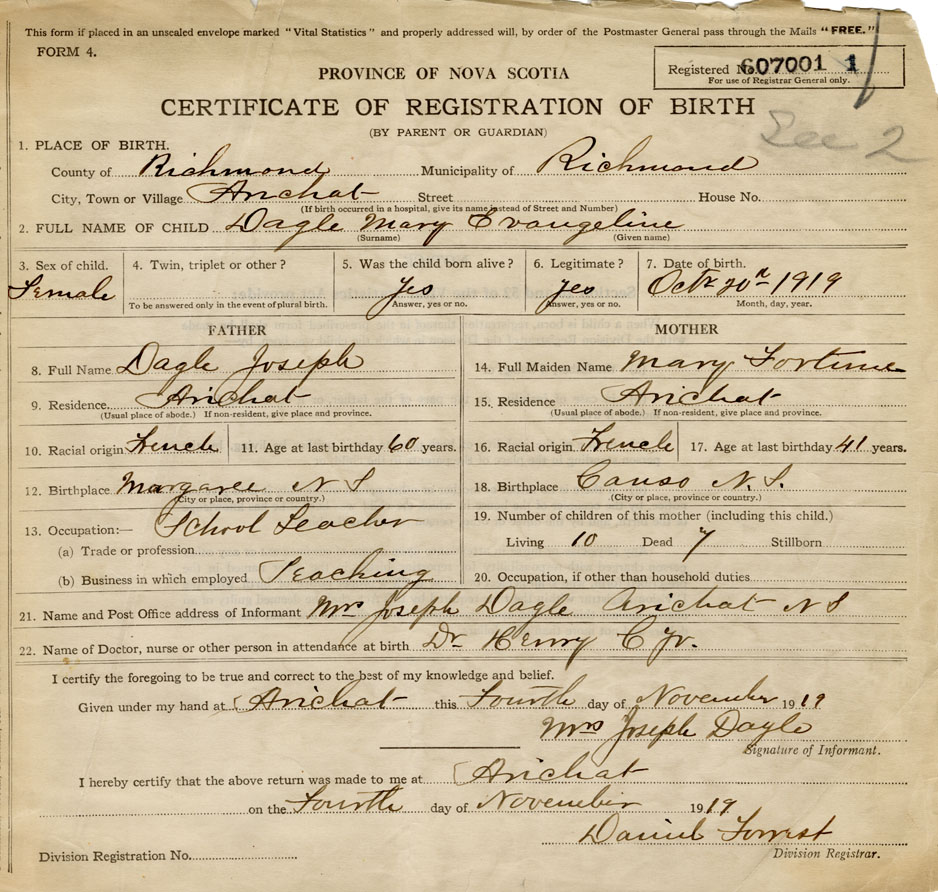 This form if placed in an unsealed envelope marked "Vital Statistics" and properly addressed will, by order of the Postmaster General pass through the Mails "FREE."
FORM 4.
Registered No. 607001 1
For use of Registrar General only.
PROVINCE OF NOVA SCOTIA
CERTIFICATE OF REGISTRATION OF BIRTH
(BY PARENT OR GUARDIAN)
See 2
1. PLACE OF BIRTH.
County of Richmond Municipality of Richmond
City, Town or Village Arichat Street House No.
(If birth occurred in a hospital, give its name instead of Street and Number)
2. FULL NAME OF CHILD Dagle Mary Evangeline
(Surname) (Given name)
3. Sex of child. 4. Twin, triplet or other? 5. Was the child born alive? 6. Legitimate? 7. Date of birth.
Female Yes Yes Oct 20 1919
To be answered only in the event of plural birth. Answer, yes or no. Answer, yes or no. Month, day, year.
FATHER MOTHER
8. Full Name Dagle Joseph 14. Full Maiden Name Mary Fortune
9. Residence Arichat 15. Residence Arichat
(Usual place of abode.) If non-resident, give place and province. (Usual place of abode.) If non-resident, give place and province.
10. Racial origin French 11. Age at last birthday 60 years. 16. Racial origin French 17. Age at last birthday 41 years.
12. Birthplace Margaree N S 18. Birthplace Canso N.S.
(City or place, province or country.) (City or place, province or country.)
13. Occupation:— School Teacher 19. Number of children of this mother (including this child.)
(a) Trade or profession Living 10 Dead 7 Stillborn
(b) Business in which employed Teaching 20. Occupation, if other than household duties
21. Name and Post Office address of Informant Mrs Joseph Dagle Arichat N S
22. Name of Doctor, nurse or other person in attendance at birth Dr Henry C Jr.
I certify the foregoing to be true and correct to the best of my knowledge and belief.
Given under my hand at Arichat this Fourth day of November 1919
Mrs Joseph Dagle
Signature of Informant.
I hereby certify that the above return was made to me at Arichat
on the Fourth day of November 1919
Daniel Forrest
Division Registrar.
Division Registration No.